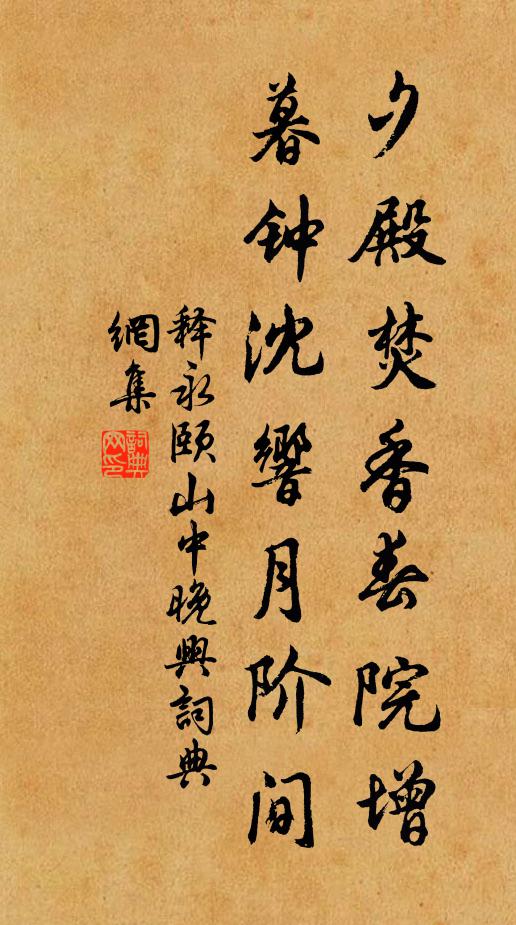 夕殿焚香春院增
暮钟沈響月阶间
释永颐山中晚興詞典
網集
詞典
网印